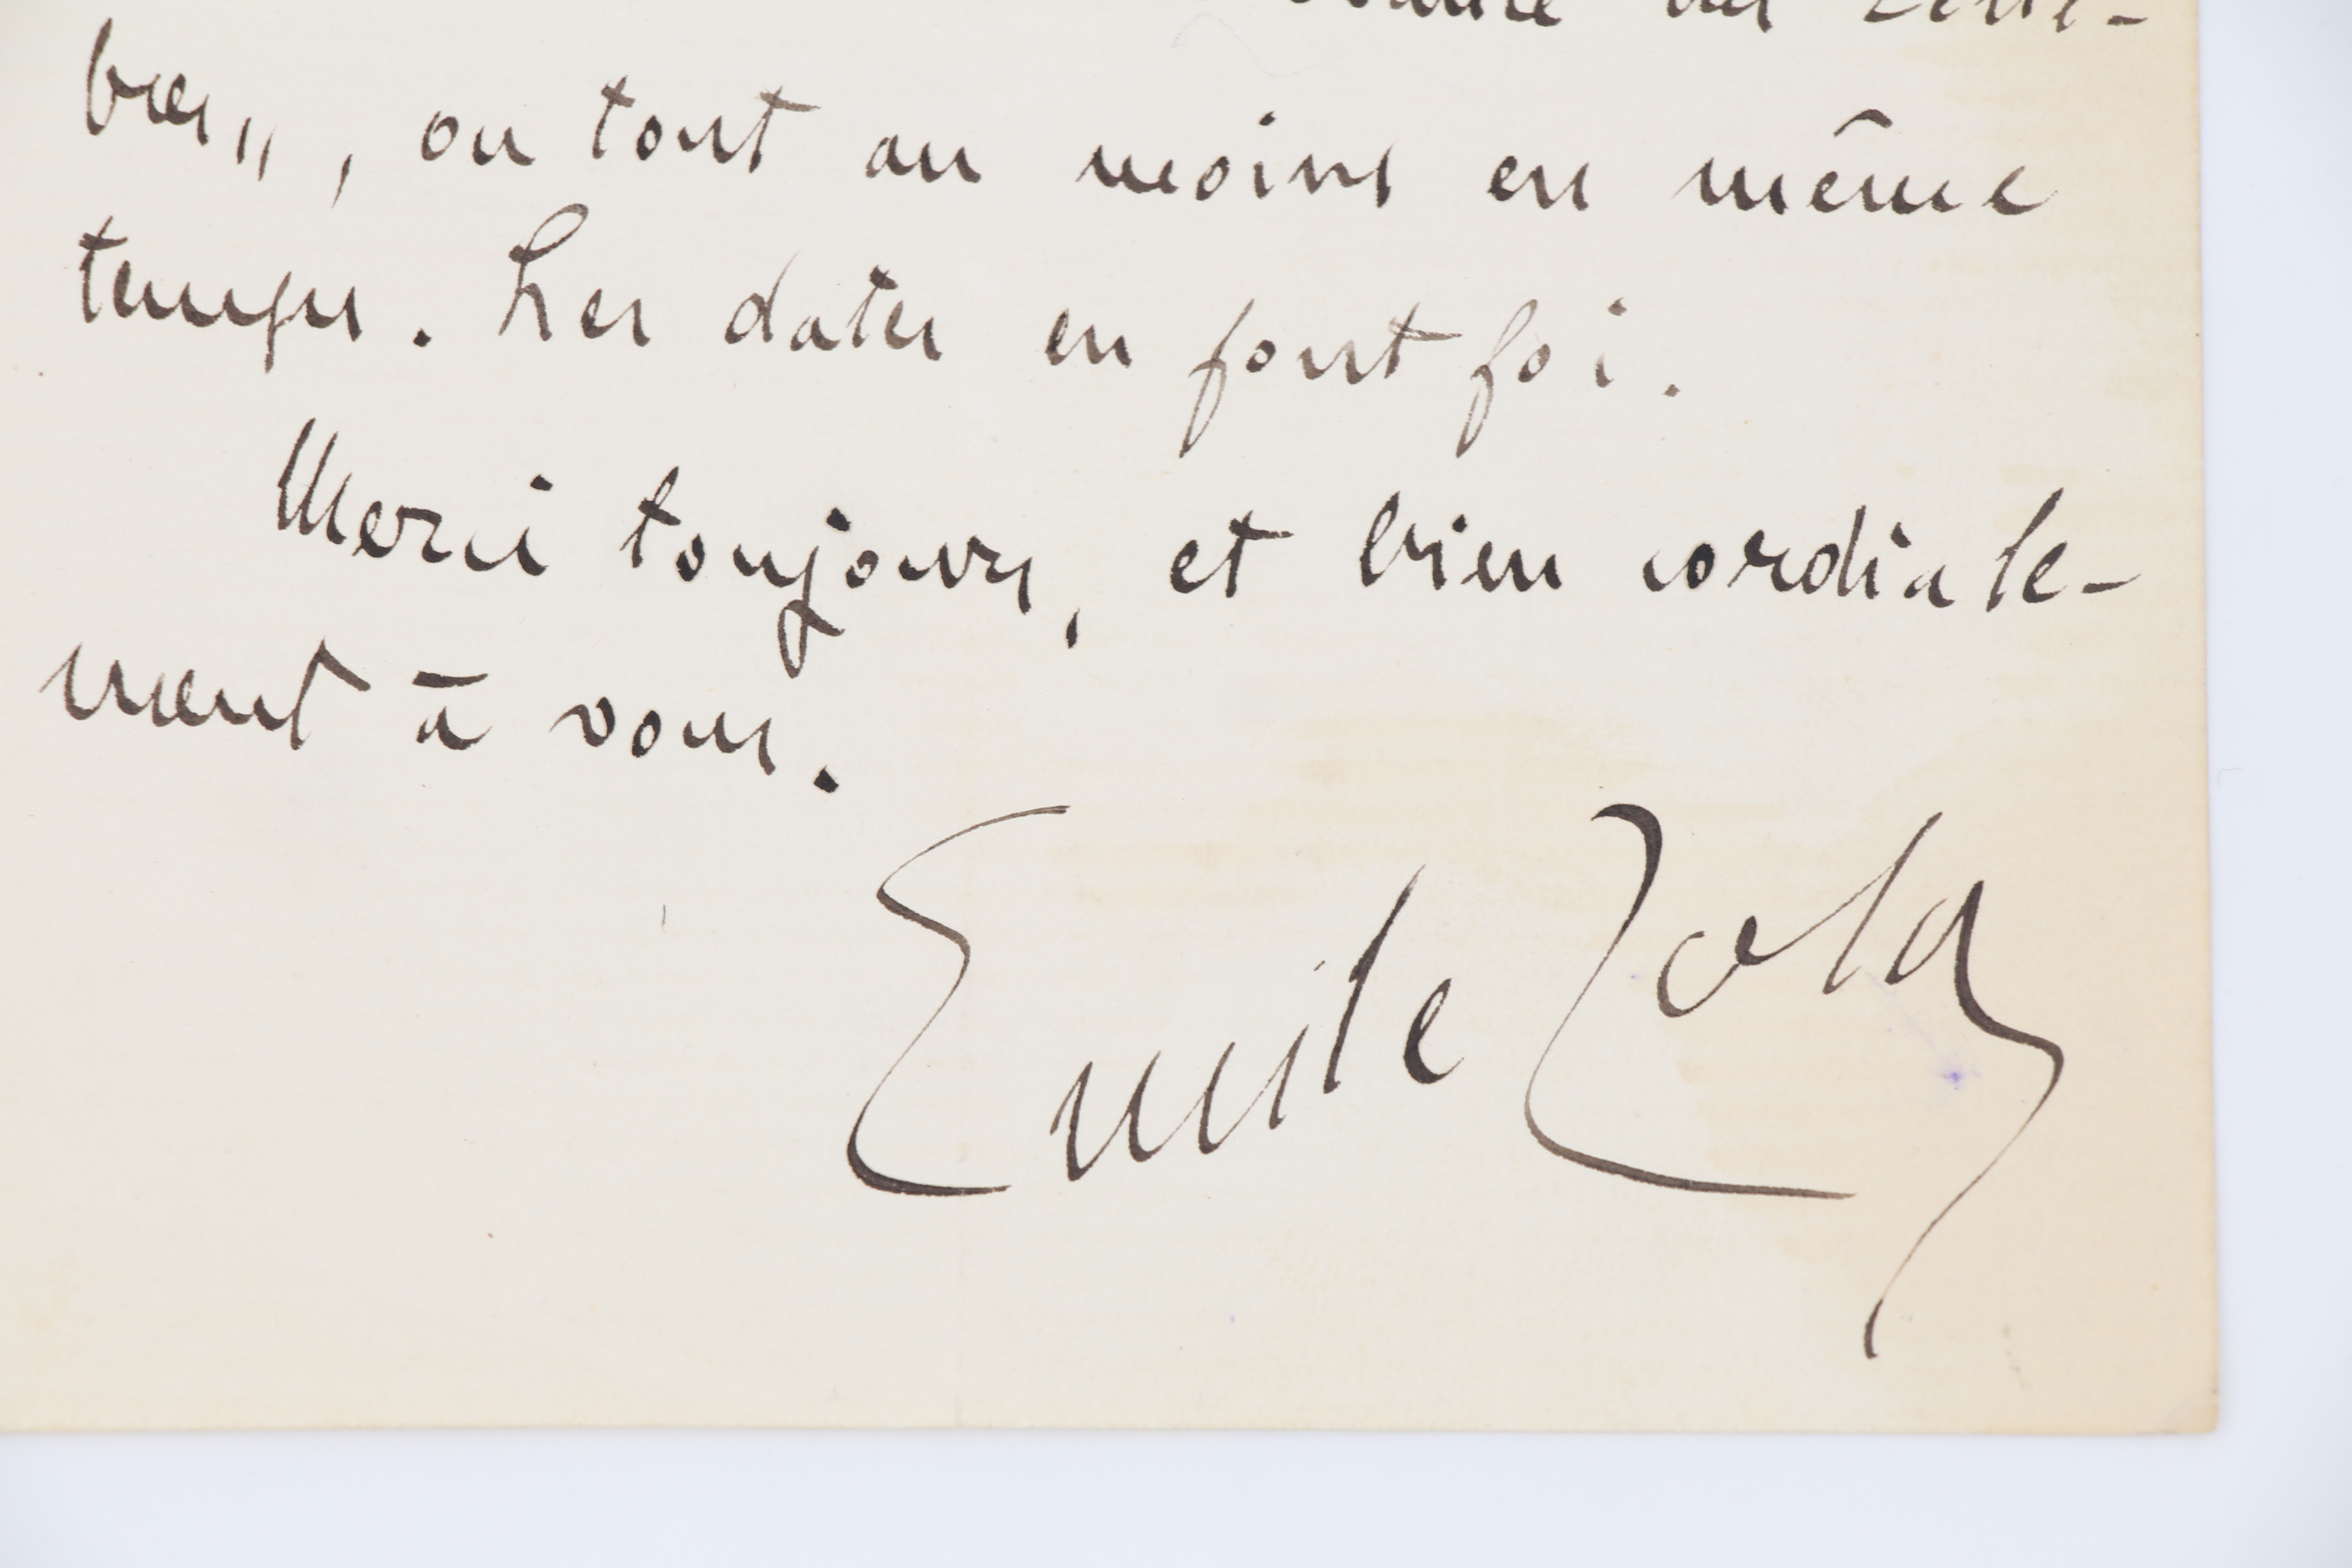 des Ténè-
bres„ , ou tout au moins en même
temps. Les dates en font foi.
Merci toujours, et bien cordiale-
ment à vous.
Emile Zola